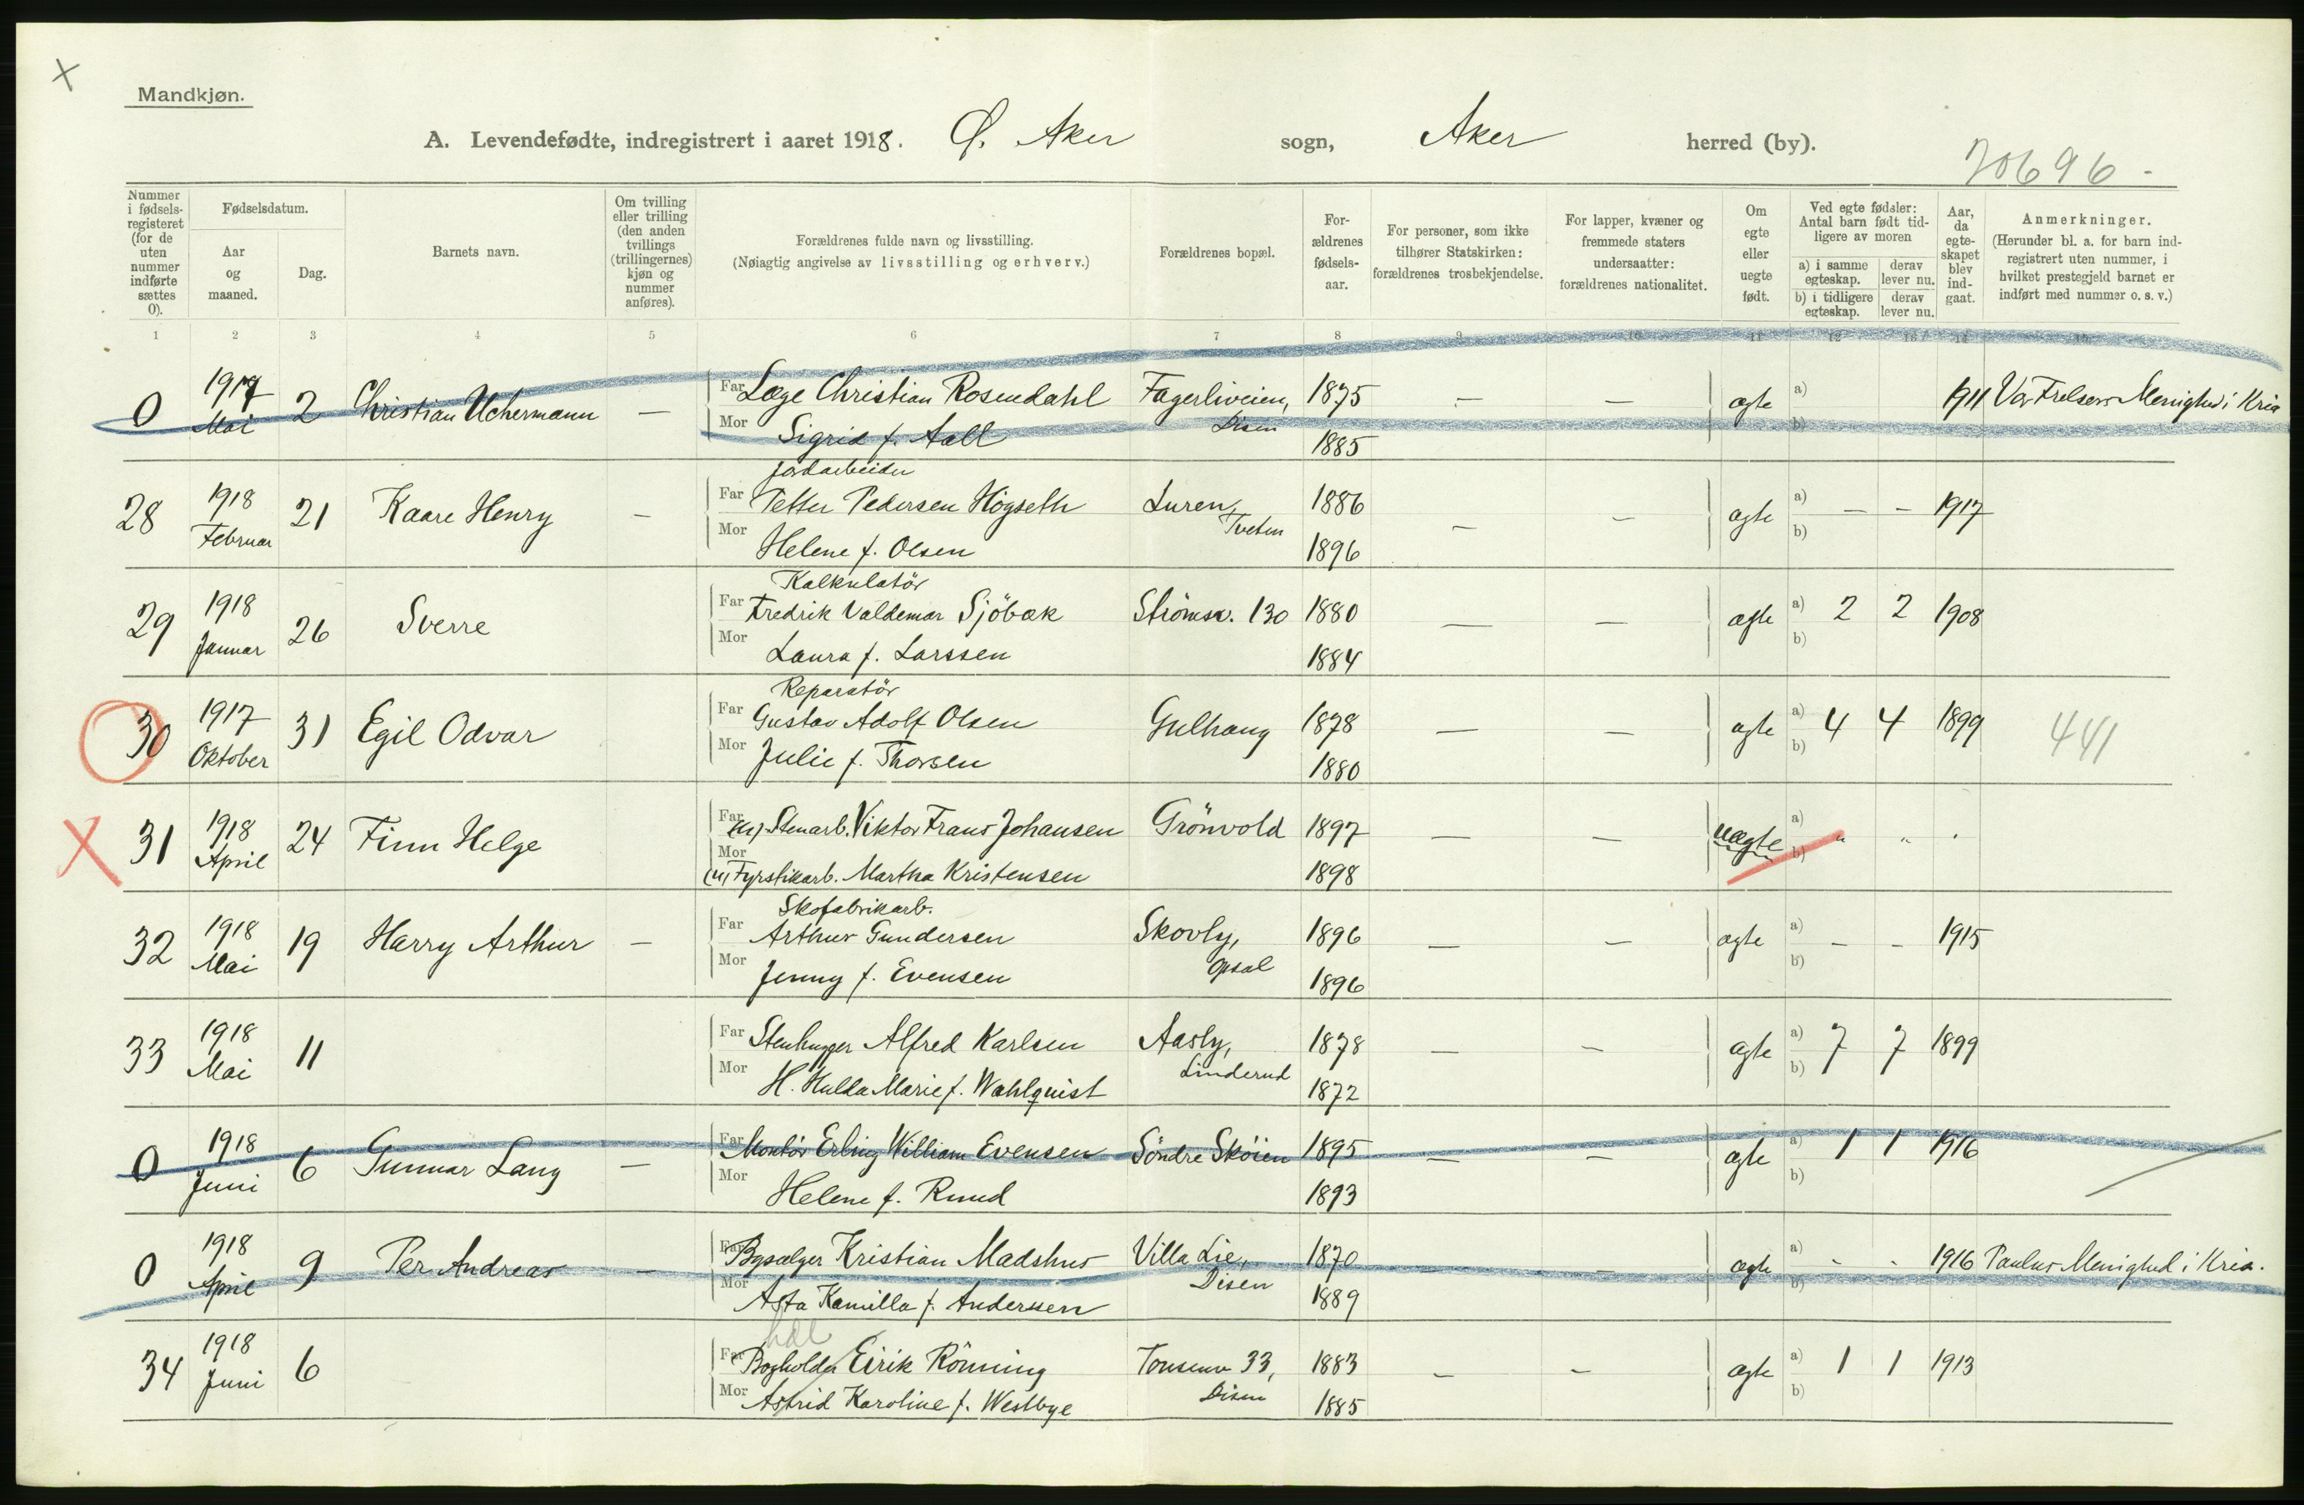 Mandkjøn.
A. Levendefødte, indregistrert i aaret 1918. Ø. Aker sogn, Aker herred (by).
20696.
Nummer i fødselsregisteret (for de uten nummer indførte sættes 0).
Fødselsdatum.
Aar og maaned.
Dag.
Barnets navn.
Om tvilling eller trilling (den anden tvillings (trillingernes) kjøn og nummer anføres).
Forældrenes fulde navn og livsstilling.
(Nøiagtig angivelse av livsstilling og erhverv.)
Forældrenes bopæl.
Forældrenes fødselsaar.
For personer, som ikke tilhører Statskirken: forældrenes trosbekjendelse.
For lapper, kvæner og fremmede staters undersaatter: forældrenes nationalitet.
Om egte eller uegte født.
Ved egte fødsler: Antal barn født tidligere av moren
a) i samme egteskap. derav lever nu.
b) i tidligere egteskap. derav lever nu.
Aar, da egteskapet blev indgaat.
Anmerkninger.
(Herunder bl. a. for barn indregistrert uten nummer, i hvilket prestegjeld barnet er indført med nummer o. s. v.)
1 2 3 4 5 6 7 8 9 10 11 12 13 14 15
0 1917 Mai 2 Christian Uchermann — Far Læge Christian Rosendahl Fagerliveien, Disen 1875 — — ægte a) 1911 Vor Frelsers Menighed i Kria
Mor Sigrid f. Aall 1885 b)
Jordarbeider
28 1918 Februar 21 Kaare Henry — Far Petter Pedersen Høgseth Luren, Tveten 1886 — — ægte a) — — 1917
Mor Helene f. Olsen 1896 b)
Kalkulatör
29 1918 Januar 26 Sverre Far Fredrik Valdemar Sjöbæk Strömsv. 130 1880 — — ægte a) 2 2 1908
Mor Laura f. Larssen 1884 b)
Reparatör
30 1917 Oktober 31 Egil Odvar Far Gustav Adolf Olsen Gulhaug 1878 — — ægte a) 4 4 1899 441
Mor Julie f. Thorsen 1880 b)
31 1918 April 24 Finn Helge Far (u) Stenarb. Viktor Frans Johansen Grönvold 1897 — — uægte a) " "
Mor (u) Fyrstikarb. Martha Kristensen 1898 b)
Skofabrikarb.
32 1918 Mai 19 Harry Arthur — Far Arthur Gundersen Skovly, Opsal 1896 — — ægte a) — — 1915
Mor Jenny f. Evensen 1896 b)
33 1918 Mai 11 Far Stenhugger Alfred Karlsen Aasly, Linderud 1878 — — ægte a) 7 7 1899
Mor H. Hulda Marie f. Wahlquist 1872 b)
0 1918 Juni 6 Gunnar Lang — Far Montör Erling William Evensen Söndre Sköien 1895 — — ægte a) 1 1 1916
Mor Helene f. Ruud 1893 b)
0 1918 April 9 Per Andreas — Far Bysælger Kristian Madshus Villa Lie, Disen 1870 — — ægte a) - - 1916 Paulus Menighed i Kria.
Mor Asta Kamilla f. Anderssen 1889 b)
hdl
34 1918 Juni 6 Far Bogholder Eirik Rönning Tonsenv 33, Disen 1883 — — ægte a) 1 1 1913
Mor Astrid Karoline f. Westbye 1885 b)